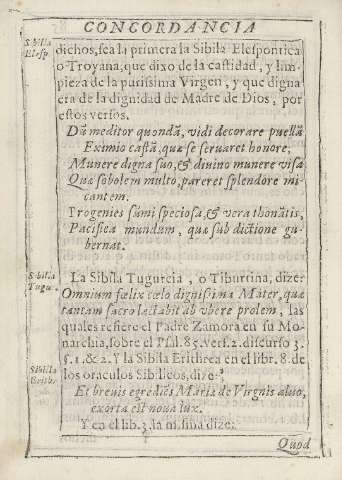 CONCORDANCIA
Sibilla
Elesp.
dichos, sea la primera la Sibila Elespontica
o Troyana, que dixo de la castidad, y lim-
pieza de la purissima Virgen, y que digna
era de la dignidad de Madre de Dios, por
estos versos.
Dũ meditor quondã, vidi decorare puellã
Eximio castã, quæ se seruaret honore,
Munere digna suo, & diuino munere visa
Quæ sobolem multo, pareret splendore mi-
cantem.
Trogenies sũmi speciosa, & vera thonãtis,
Pacifica mundum, quæ sub dictione gu-
bernat.
Sibilla
Tugu.
La Sibila Tugurcia, o Tiburtina, dize:
Omnium fœlix cœlo dignissima Mater, quæ
tantam sacro lactabit ab vbere prolem, las
quales refiere el Padre Zamora en su Mo-
narchia, sobre el Psal. 85. vers. 2. discurso 3.
§. 1. & 2. Y la Sibila Erithrea en el libr. 8. de
Sibilla
los oraculos Sibilicos, dize:
Et breuis egrediēs Maria de Virgnis aluo,
exorta est noua lux.
Y en el lib. 3. la misma dize:
Quod